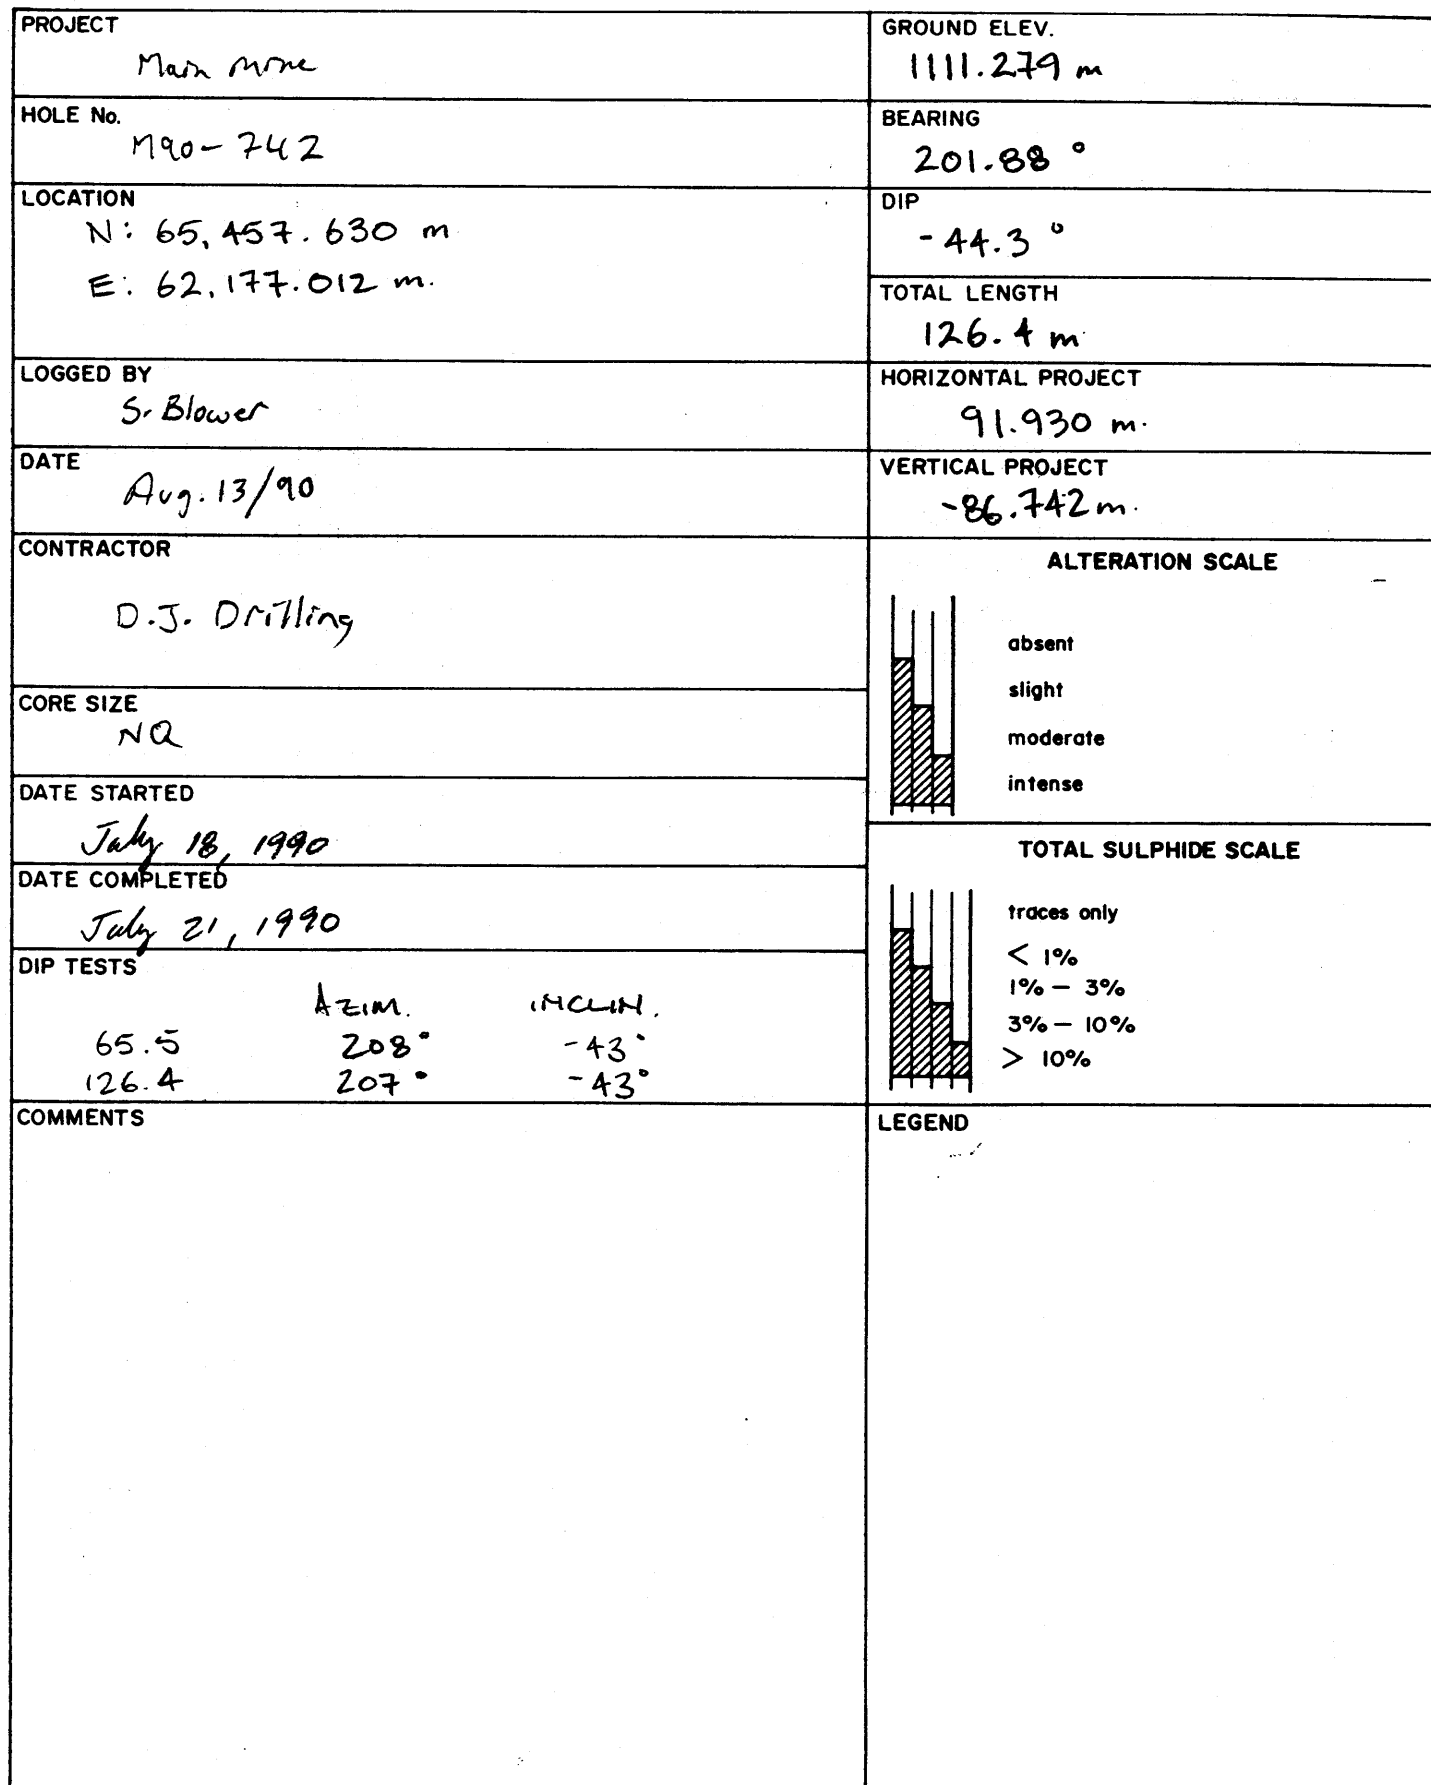 PROJECT
Main Mine
HOLE No.
M90-742
LOCATION
N: 65,457.630 m
E: 62,177.012 m.
LOGGED BY
S. Blower
DATE
Aug. 13/90
CONTRACTOR
D.J. Drilling
CORE SIZE
NQ
DATE STARTED
July 18, 1990
DATE COMPLETED
July 21, 1990
DIP TESTS
AZIM. INCLIN.
65.5 208° -43°
126.4 207° -43°
COMMENTS
GROUND ELEV.
1111.279 m
BEARING
201.88 °
DIP
-44.3 °
TOTAL LENGTH
126.4 m
HORIZONTAL PROJECT
91.930 m.
VERTICAL PROJECT
-86.742 m.
ALTERATION SCALE
absent
slight
moderate
intense
TOTAL SULPHIDE SCALE
traces only
< 1%
1% - 3%
3% - 10%
> 10%
LEGEND